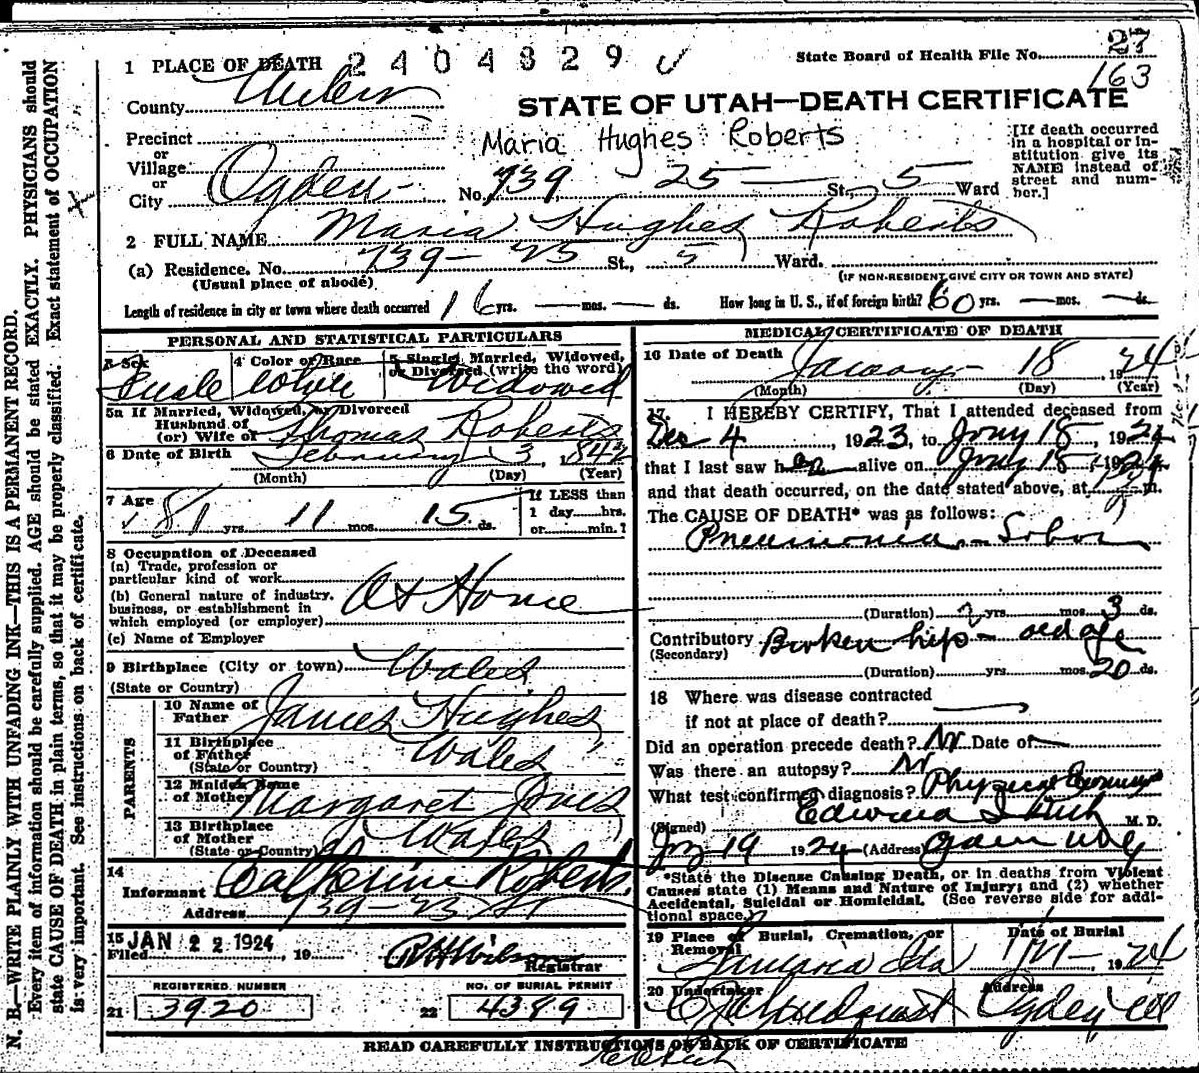 2404829
State Board of Health File No. 27
163
1 PLACE OF DEATH
County
STATE OF UTAH—DEATH CERTIFICATE
Precinct
or
Village
or
City Ogden
Maria Hughes Roberts
No. 739 25 St, 5 Ward
[If death occurred in a hospital or institution give its NAME instead of street and number.]
2 FULL NAME Maria Hughes Roberts
(a) Residence. No. 739 - 25 St., 5 Ward.
(Usual place of abode)
(IF NON-RESIDENT GIVE CITY OR TOWN AND STATE)
Length of residence in city or town where death occurred 16 yrs. — mos. — ds. How long in U. S., if of foreign birth? 60 yrs. — mos. — ds.
PERSONAL AND STATISTICAL PARTICULARS
3 Sex
4 Color or Race White
5 Single, Married, Widowed, or Divorced (write the word) Widowed
5a If Married, Widowed, or Divorced
Husband of
(or) Wife of Thomas Roberts
6 Date of Birth February 3, 1842
(Month) (Day) (Year)
7 Age 81 yrs. 11 mos. 15 ds.
If LESS than
1 day....hrs.
or....min.?
8 Occupation of Deceased
(a) Trade, profession or
particular kind of work
(b) General nature of industry,
business, or establishment in
which employed (or employer) At Home
(c) Name of Employer
9 Birthplace (City or town) Wales
(State or Country)
PARENTS
10 Name of Father James Hughes
11 Birthplace of Father Wales
(State or Country)
12 Maiden Name of Mother Margaret Jones
13 Birthplace of Mother Wales
(State or Country)
14
Informant Catherine Roberts
Address 739-25 St
15 Filed JAN 22 1924, 19
Registrar
REGISTERED NUMBER
21 3920
NO. OF BURIAL PERMIT
22 4389
MEDICAL CERTIFICATE OF DEATH
16 Date of Death January 18, 1924
(Month) (Day) (Year)
17. I HEREBY CERTIFY, That I attended deceased from
Dec 4, 1923, to Jany 18, 1924
that I last saw her alive on Jany 18, 1924
and that death occurred, on the date stated above, at m.
The CAUSE OF DEATH* was as follows:
Pneumonia - Lobar
(Duration) yrs. mos. 3 ds.
Contributory Broken hip - old age
(Secondary)
(Duration) yrs. mos. 20 ds.
18 Where was disease contracted
if not at place of death?
Did an operation precede death? No Date of —
Was there an autopsy? No
What test confirmed diagnosis? Physical
(Signed) Edward M. D.
19 1924 (Address) Ogden
*State the Disease Causing Death, or in deaths from Violent
Causes state (1) Means and Nature of Injury; and (2) whether
Accidental, Suicidal or Homicidal. (See reverse side for additional space.)
19 Place of Burial, Cremation, or Removal
Date of Burial 1924
20 Undertaker
Address Ogden
READ CAREFULLY INSTRUCTIONS ON BACK OF CERTIFICATE
N. B.—WRITE PLAINLY WITH UNFADING INK—THIS IS A PERMANENT RECORD.
Every item of information should be carefully supplied. AGE should be stated EXACTLY. PHYSICIANS should
state CAUSE OF DEATH in plain terms, so that it may be properly classified. Exact statement of OCCUPATION
is very important. See instructions on back of certificate.